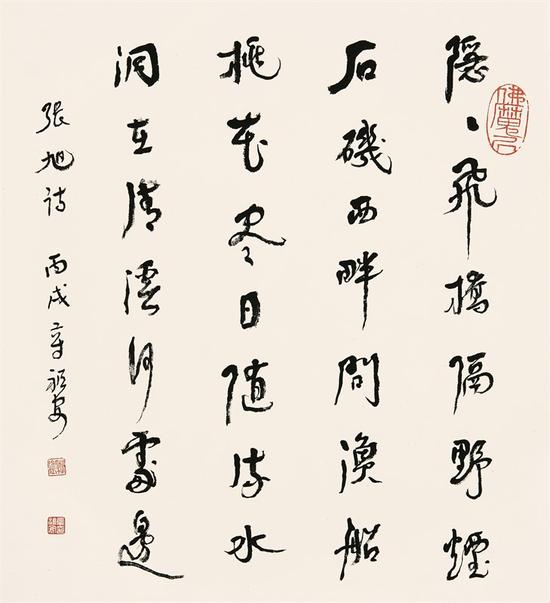 隱々飛橋隔野煙
石磯西畔問漁船
桃花尽日隨流水
洞在清溪何處邊
張旭詩 丙戌 章祖安